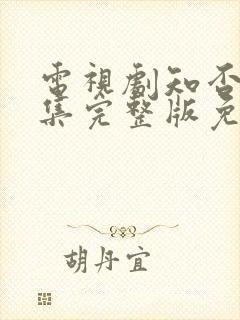 電視劇知否
集完整版免
胡丹宜